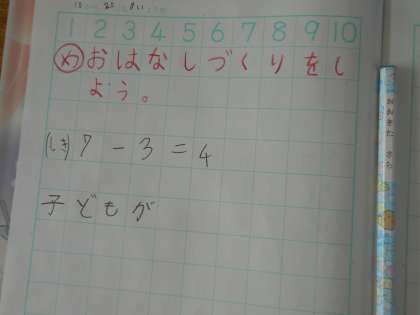 1 2 3 4 5 6 7 8 9 10
め おはなしづくりをし
よう。
(しき) 7 - 3 = 4
子どもが